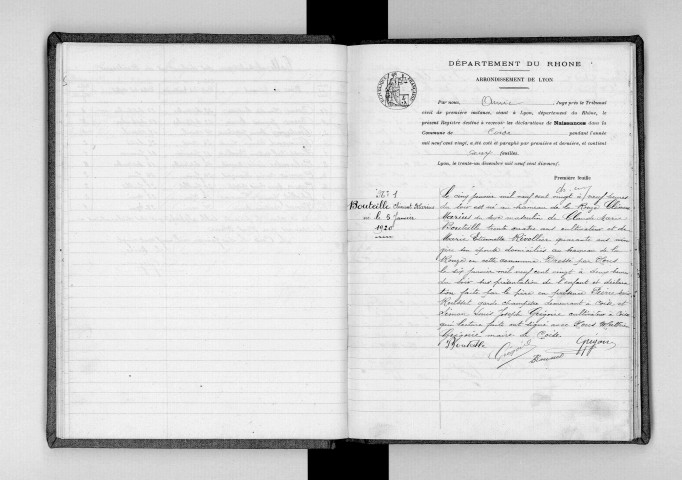 DÉPARTEMENT DU RHONE
ARRONDISSEMENT DE LYON
Par nous, Juge près le Tribunal
civil de première instance, séant à Lyon, département du Rhône, le
présent Registre destiné à recevoir les déclarations de Naissances dans la
Commune de Coise pendant l'année
mil neuf cent vingt, a été coté et paraphé par première et dernière, et contient
onze feuilles.
Lyon, le trente-un décembre mil neuf cent dix-neuf.
Première feuille
N° 1
Bouteille Claude Marius
né le 5 Janvier
1920
Le cinq janvier mil neuf cent vingt à neuf heures
du soir est né au hameau de la Rouze Claude
Marius du sexe masculin de Claude Marie
Bouteille trente quatre ans cultivateur et de
Marie Etiennette Rivollier quarante ans
son épouse domiciliés au hameau de la
Rouze en cette commune Dressé par Nous
le six janvier mil neuf cent vingt à deux heures
du soir sur présentation de l'enfant et déclara
tion faite par le père en présence de
Rousset garde champêtre demeurant à Coise et
Louis Joseph Grégoire cultivateur à Coise
qui lecture faite ont signé avec Nous
Grégoire maire de Coise.
Bouteille Grégoire
Grégoire Rousset